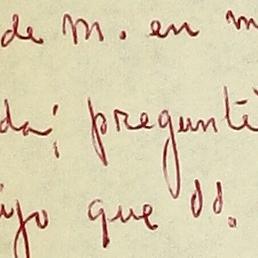 de m. en m
da; pregunté
ijo que dd.